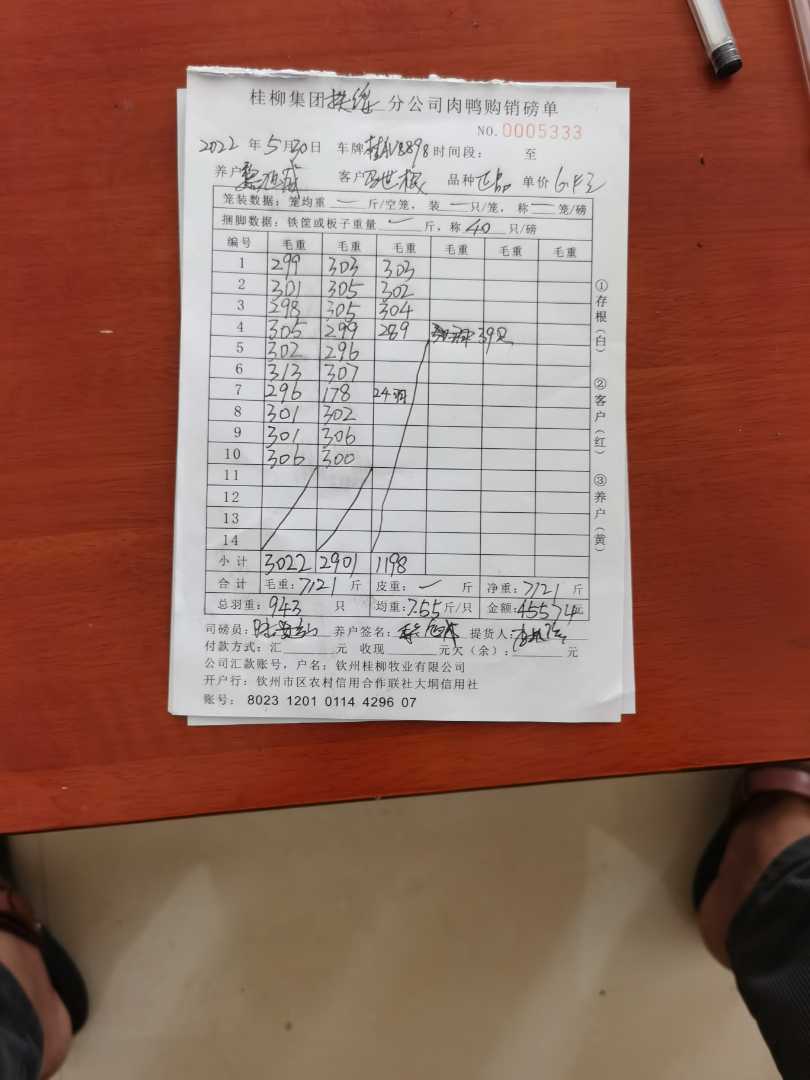 桂柳集团扶绥分公司肉鸭购销磅单
NO.0005333
2022年5月30日 车牌桂AV8898时间段: 至
养户 客户 品种正品 单价6.4元
笼装数据: 笼均重 斤/空笼, 装 只/笼, 称 笼/磅
捆脚数据: 铁筐或板子重量 斤, 称40只/磅
编号 毛重 毛重 毛重 毛重 毛重 毛重
1 299 303 303
2 301 305 302
3 298 305 304
4 305 299 289 39只
5 302 296
6 313 307
7 296 178 24羽
8 301 302
9 301 306
10 306 300
11
12
13
14
小计 3022 2901 1198
合计 毛重:7121斤 皮重: 斤 净重:7121斤
总羽重:943只 均重:7.55斤/只 金额:45574元
司磅员: 养户签名: 提货人:
付款方式:汇 元 收现 元欠(余): 元
公司汇款账号, 户名: 钦州桂柳牧业有限公司
开户行: 钦州市区农村信用合作联社大垌信用社
账号: 8023 1201 0114 4296 07
①存根(白) ②客户(红) ③养户(黄)